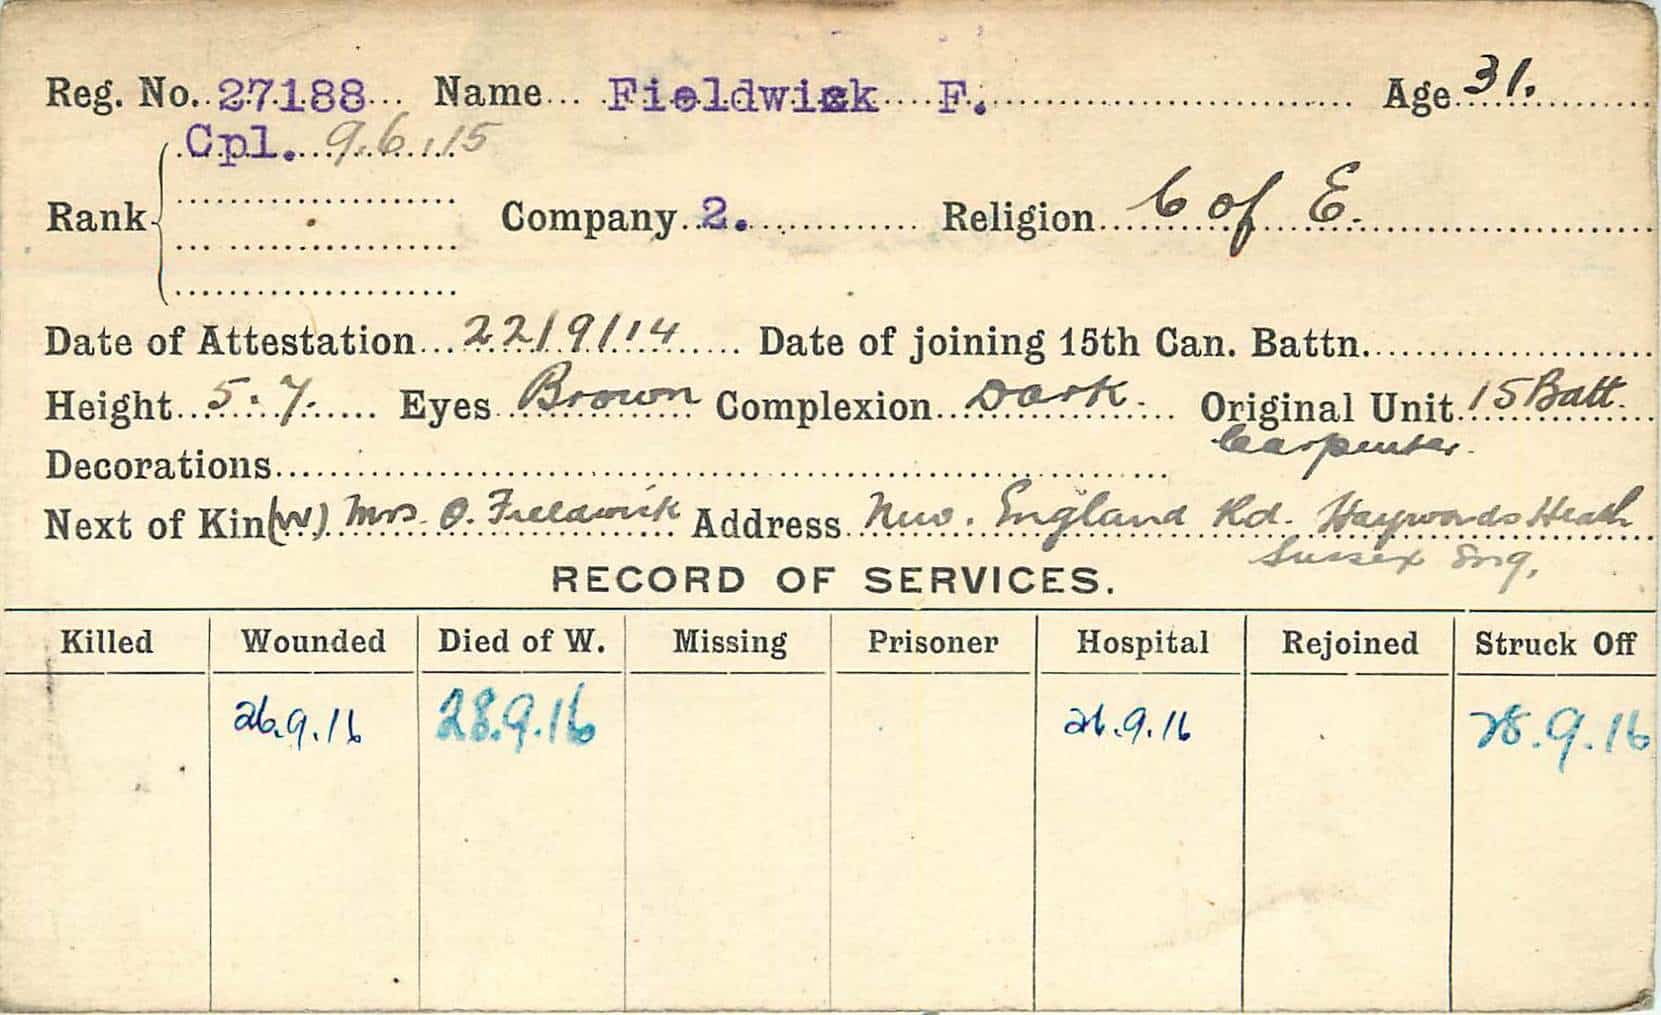 Reg. No. 27188 Name Fieldwick F. Age 31.
Cpl. 9.6.15
Rank Company 2. Religion C of E.
Date of Attestation 22/9/14 Date of joining 15th Can. Battn.
Height 5.7. Eyes Brown Complexion Dark. Original Unit 15 Batt.
Decorations Carpenter.
Next of Kin (W) Mrs. O. Fieldwick Address New. England Rd. Haywards Heath
Sussex Eng.
RECORD OF SERVICES.
Killed Wounded Died of W. Missing Prisoner Hospital Rejoined Struck Off
26.9.16 28.9.16 26.9.16 28.9.16